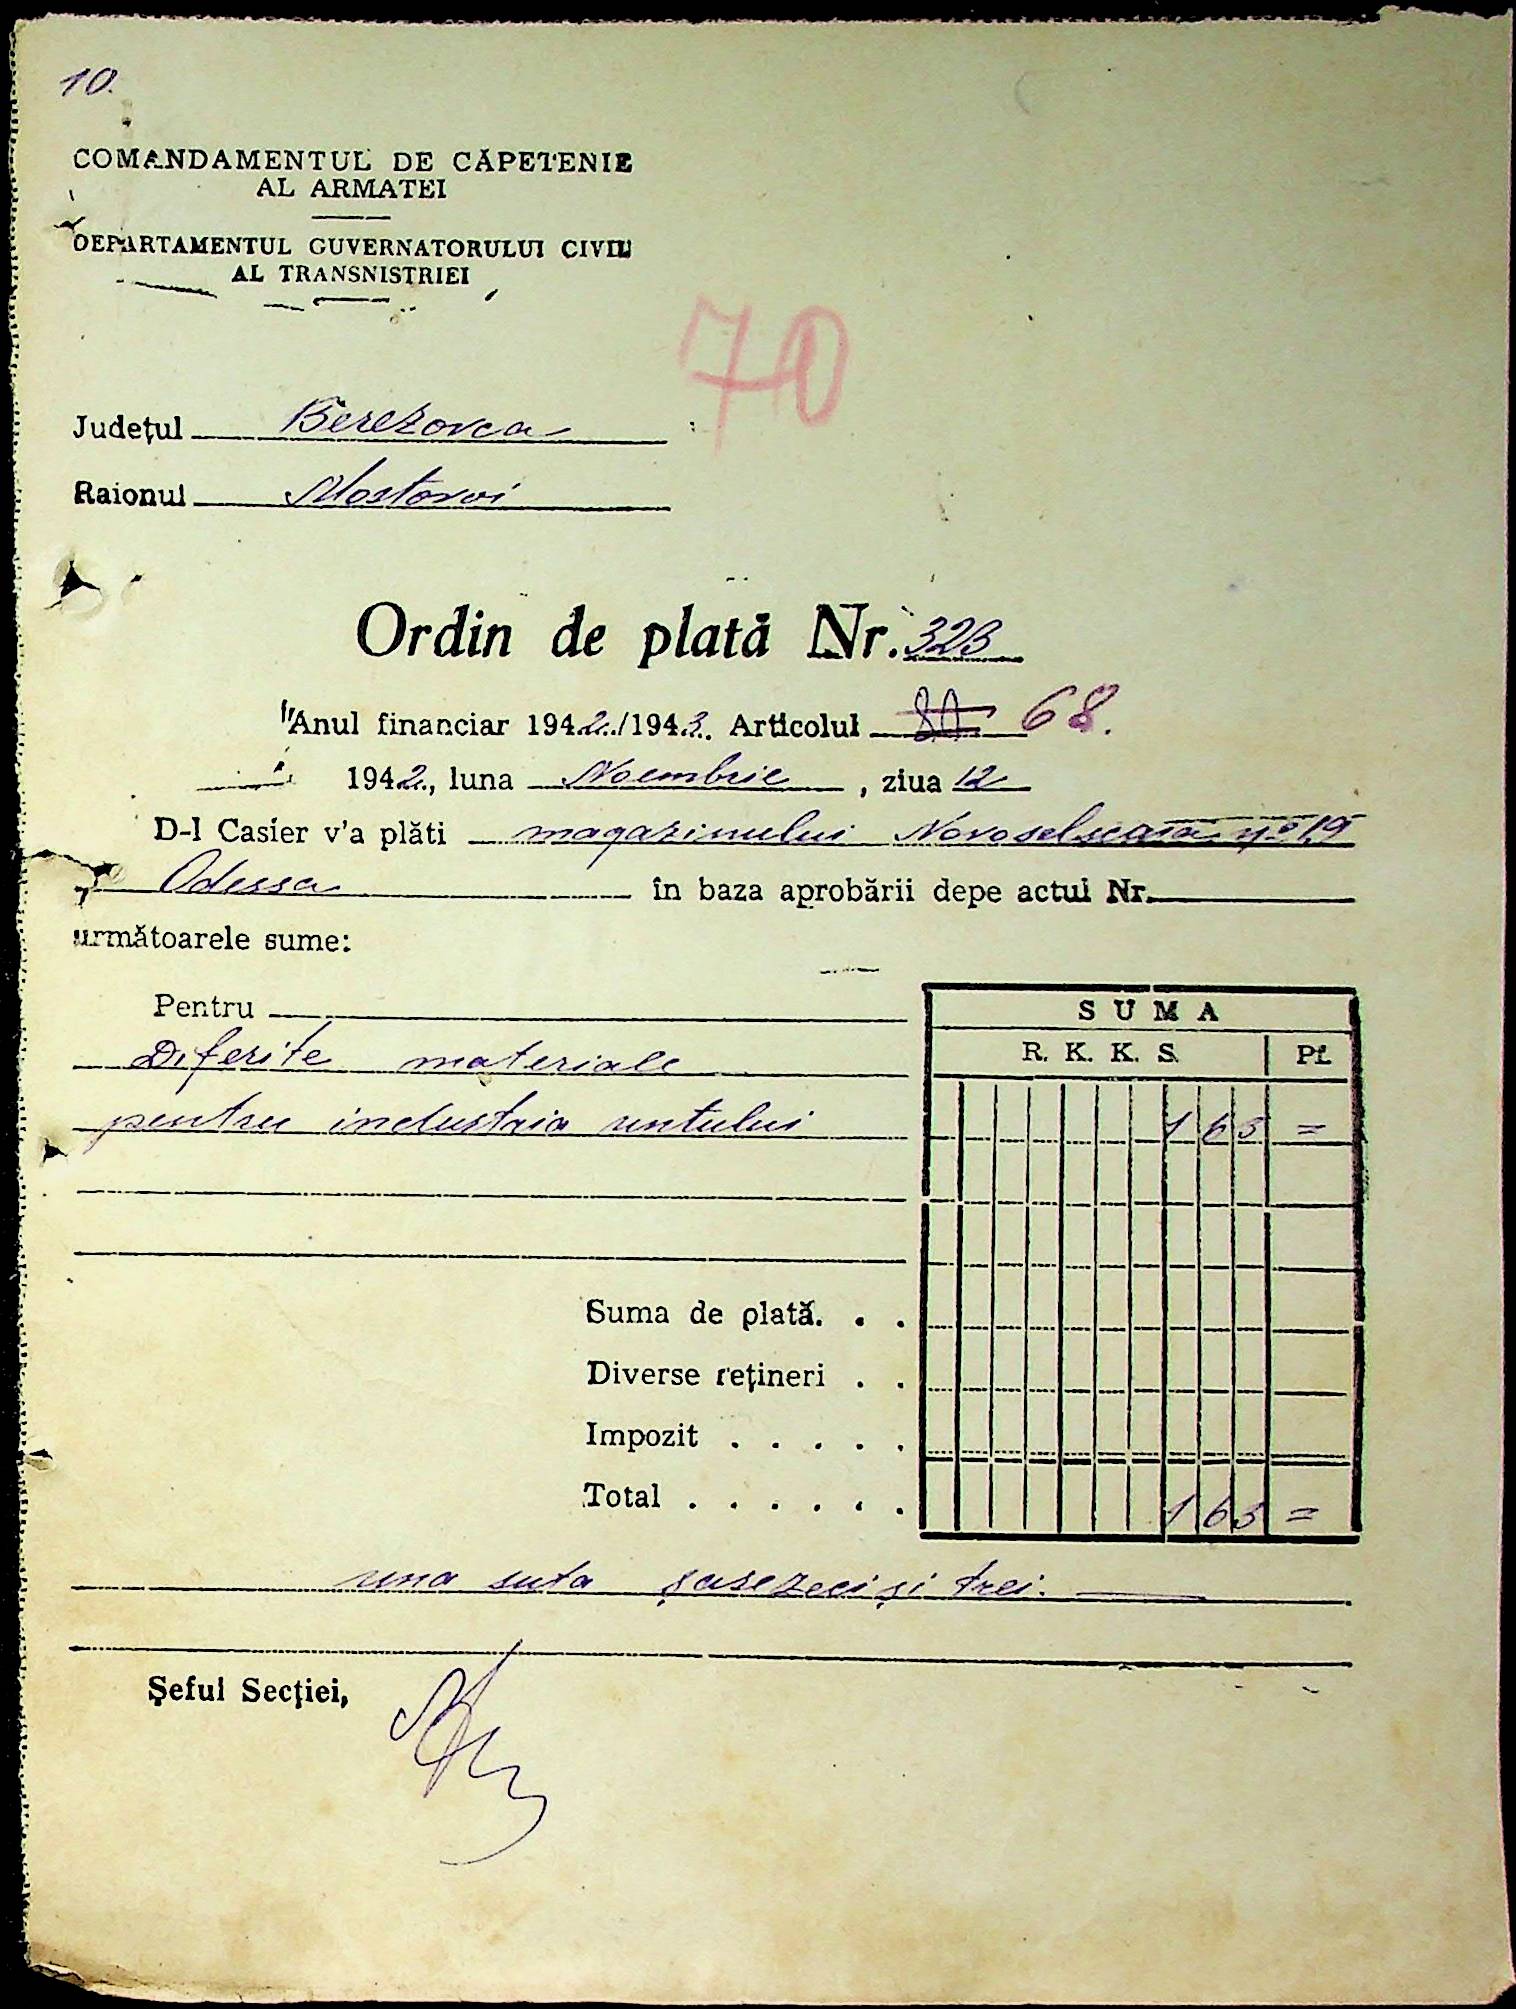 10.
COMANDAMENTUL DE CĂPETENIE
AL ARMATEI
DEPARTAMENTUL GUVERNATORULUI CIVIL
AL TRANSNISTRIEI
70
Județul Berezovca
Raionul Mostovoi
Ordin de plată Nr. 323
Anul financiar 1942/1943. Articolul 68.
1942, luna Noembrie, ziua 12
D-l Casier v'a plăti magazinului Novoselscaia No 19
Odessa în baza aprobării depe actul Nr.
următoarele sume:
Pentru
Diferite materiale
pentru industria untului
SUMA
R. K. K. S. Pf.
163 =
Suma de plată. . .
Diverse rețineri . .
Impozit . . . . .
Total . . . . . . 163 =
una suta șasezeci și trei.
Șeful Secției,